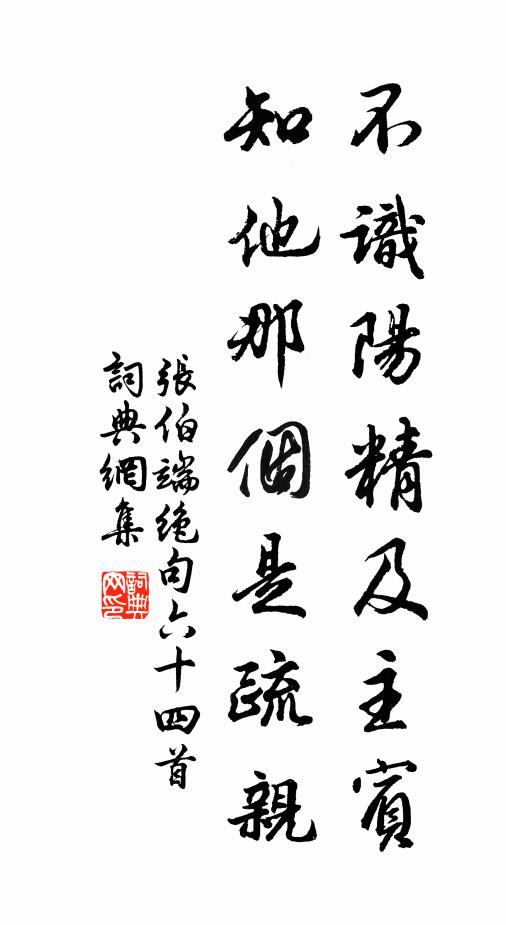 不識陽精及主賓
知他那個是疏親
張伯端絶句六十四首
詞典網集
詞典
网印